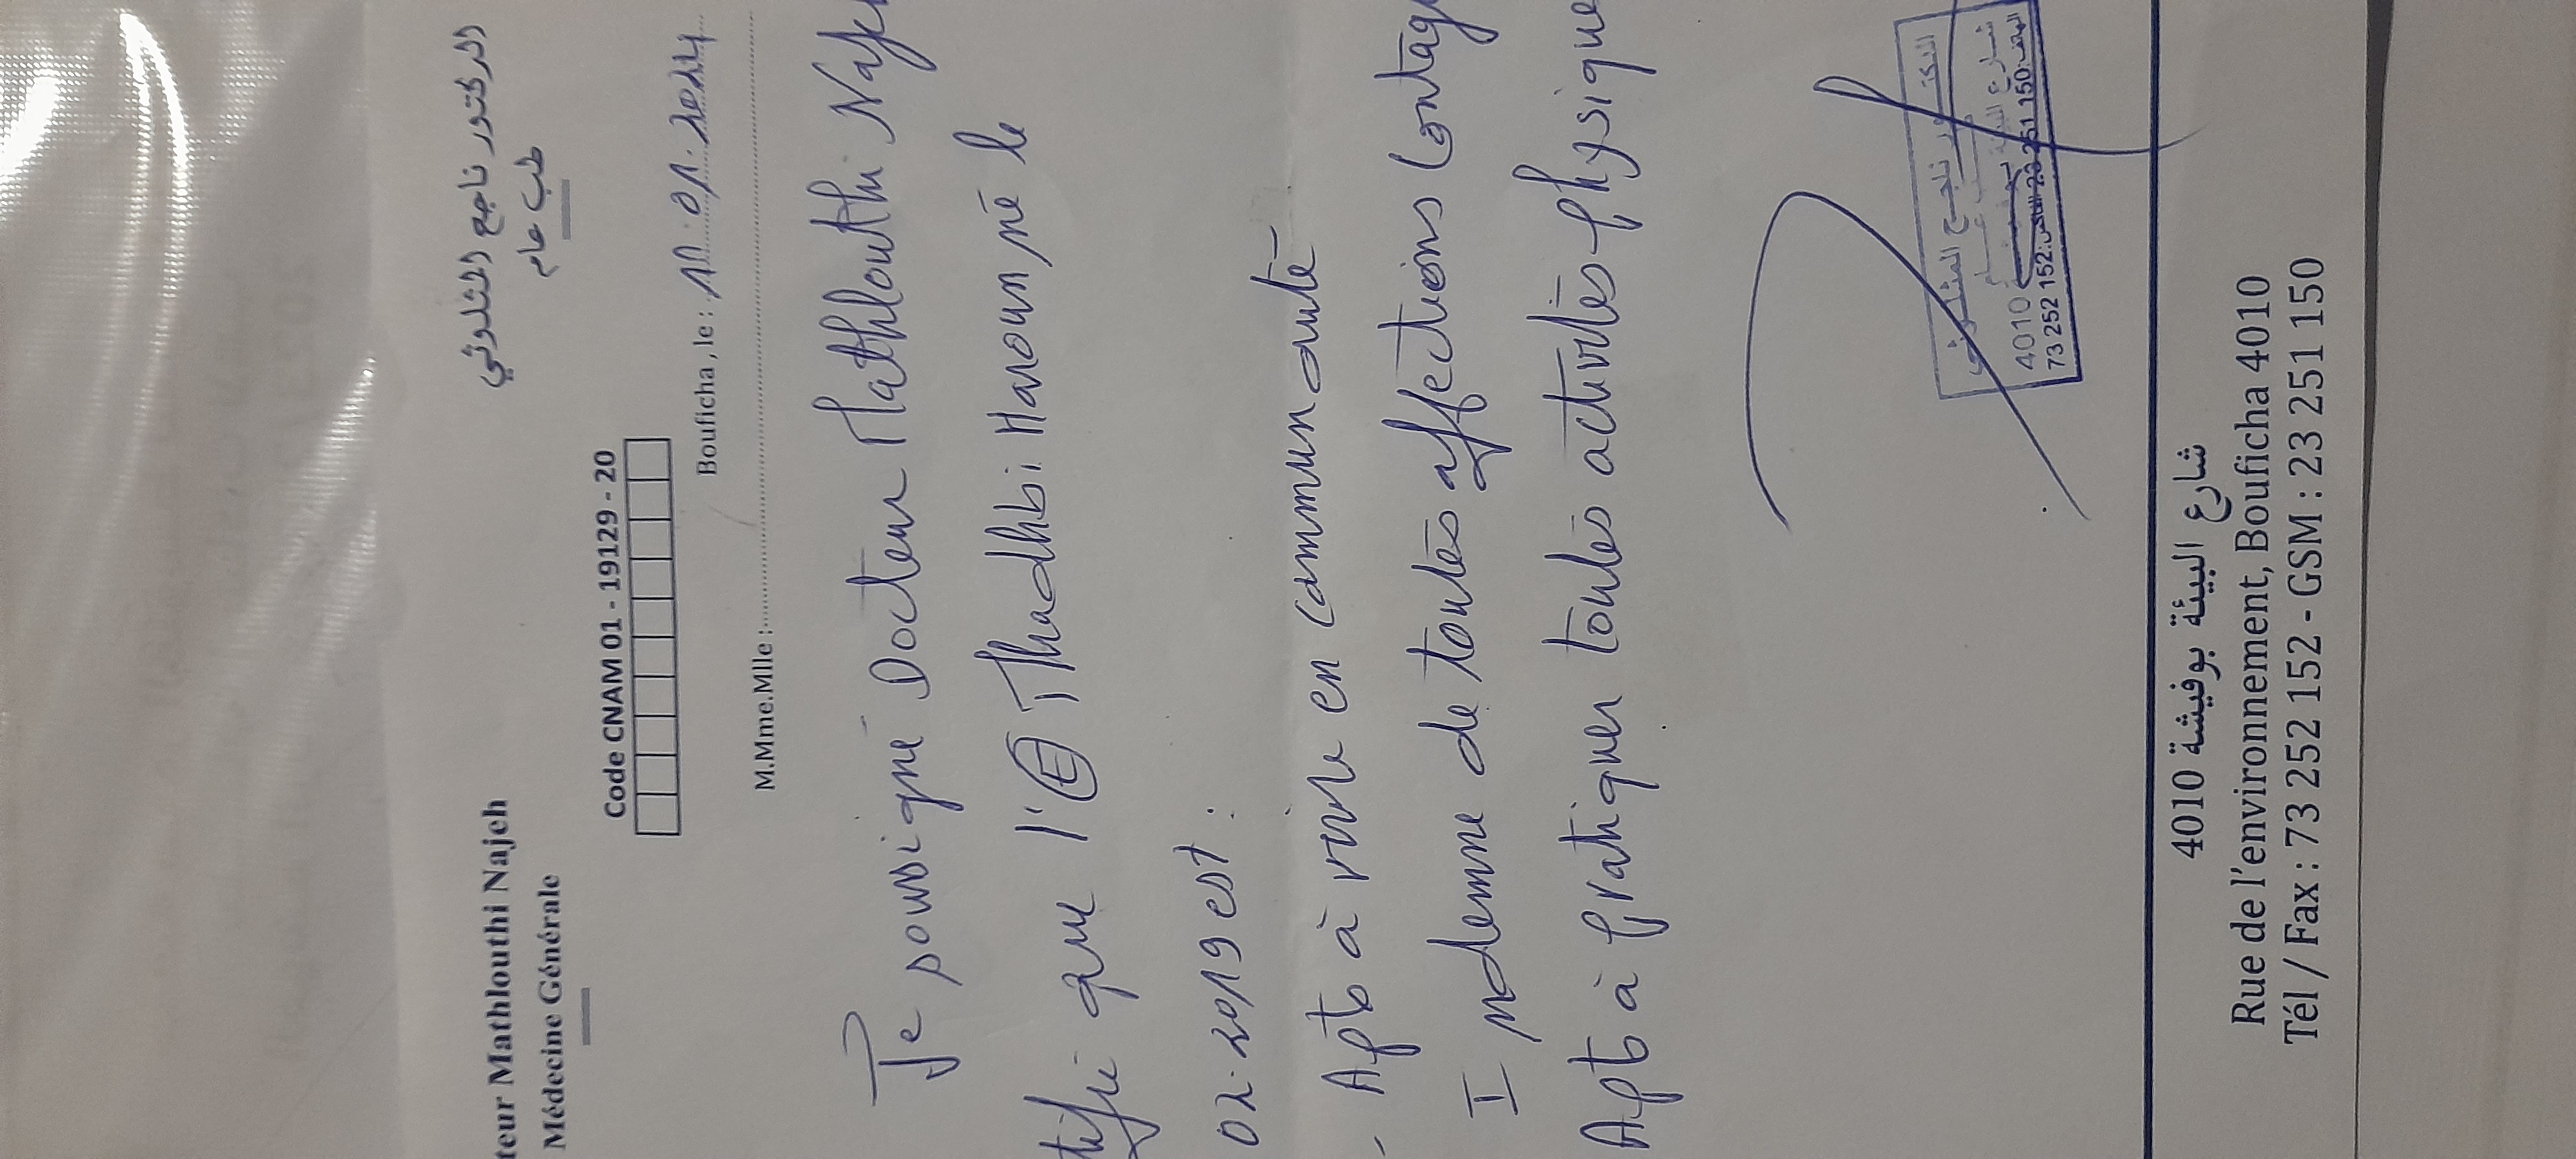 teur Mathlouthi Najeh
Médecine Générale
الدكتور ناجح المثلوثي
طب عام
Code CNAM 01 - 19129 - 20
Bouficha , le : 11.01.2024
M.Mme.Mlle :
Je soussigné Docteur Mathlouthi Najeh
tifie que l'E Thadhbi Haroun né le
02.2019 est :
- Apte à vivre en communauté
I ndemne de toutes affections Contag
Apte à pratiquer toutes activités physique
الدكتور ناجح المثلوثي
4010
73 252 152 23 251 150
شارع البيئة بوفيشة 4010
Rue de l'environnement, Bouficha 4010
Tél / Fax : 73 252 152 - GSM : 23 251 150